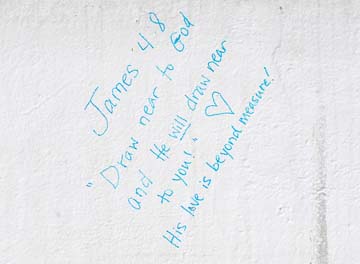 James 4:8
"Draw near to God
and He will draw near
to you!" ♡
His love is beyond measure!